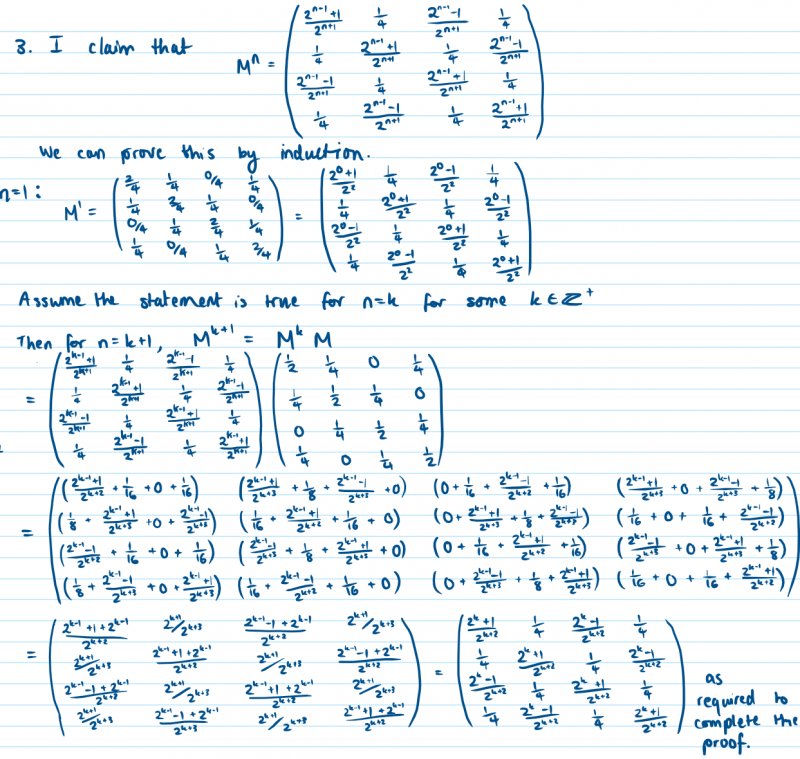 3. I claim that M^n = ( (2^{n-1}+1)/2^{n+1} 1/4 (2^{n-1}-1)/2^{n+1} 1/4
1/4 (2^{n-1}+1)/2^{n+1} 1/4 (2^{n-1}-1)/2^{n+1}
(2^{n-1}-1)/2^{n+1} 1/4 (2^{n-1}+1)/2^{n+1} 1/4
1/4 (2^{n-1}-1)/2^{n+1} 1/4 (2^{n-1}+1)/2^{n+1} )
We can prove this by induction.
n=1: M^1 = ( 2/4 1/4 0/4 1/4 = ( (2^0+1)/2^2 1/4 (2^0-1)/2^2 1/4
1/4 2/4 1/4 0/4 1/4 (2^0+1)/2^2 1/4 (2^0-1)/2^2
0/4 1/4 2/4 1/4 (2^0-1)/2^2 1/4 (2^0+1)/2^2 1/4
1/4 0/4 1/4 2/4 ) 1/4 (2^0-1)/2^2 1/4 (2^0+1)/2^2 )
Assume the statement is true for n=k for some k∈ℤ^+
Then for n=k+1, M^{k+1} = M^k M
= ( (2^{k-1}+1)/2^{k+1} 1/4 (2^{k-1}-1)/2^{k+1} 1/4 ) ( 1/2 1/4 0 1/4
1/4 (2^{k-1}+1)/2^{k+1} 1/4 (2^{k-1}-1)/2^{k+1} 1/4 1/2 1/4 0
(2^{k-1}-1)/2^{k+1} 1/4 (2^{k-1}+1)/2^{k+1} 1/4 0 1/4 1/2 1/4
1/4 (2^{k-1}-1)/2^{k+1} 1/4 (2^{k-1}+1)/2^{k+1} 1/4 0 1/4 1/2 )
= ( ((2^{k-1}+1)/2^{k+2} + 1/16 + 0 + 1/16) ((2^{k-1}+1)/2^{k+3} + 1/8 + (2^{k-1}-1)/2^{k+3} + 0) (0 + 1/16 + (2^{k-1}-1)/2^{k+2} + 1/16) ((2^{k-1}+1)/2^{k+3} + 0 + (2^{k-1}-1)/2^{k+3} + 1/8)
(1/8 + (2^{k-1}+1)/2^{k+3} + 0 + (2^{k-1}-1)/2^{k+3}) (1/16 + (2^{k-1}+1)/2^{k+2} + 1/16 + 0) (0 + (2^{k-1}+1)/2^{k+3} + 1/8 + (2^{k-1}-1)/2^{k+3}) (1/16 + 0 + 1/16 + (2^{k-1}-1)/2^{k+2})
((2^{k-1}-1)/2^{k+2} + 1/16 + 0 + 1/16) ((2^{k-1}-1)/2^{k+3} + 1/8 + (2^{k-1}+1)/2^{k+3} + 0) (0 + 1/16 + (2^{k-1}+1)/2^{k+2} + 1/16) ((2^{k-1}-1)/2^{k+3} + 0 + (2^{k-1}+1)/2^{k+3} + 1/8)
(1/8 + (2^{k-1}-1)/2^{k+3} + 0 + (2^{k-1}+1)/2^{k+3}) (1/16 + (2^{k-1}-1)/2^{k+2} + 1/16 + 0) (0 + (2^{k-1}-1)/2^{k+3} + 1/8 + (2^{k-1}+1)/2^{k+3}) (1/16 + 0 + 1/16 + (2^{k-1}+1)/2^{k+2}) )
= ( (2^{k-1}+1+2^{k-1})/2^{k+2} 2^{k+1}/2^{k+3} (2^{k-1}-1+2^{k-1})/2^{k+2} 2^{k+1}/2^{k+3} = ( (2^k+1)/2^{k+2} 1/4 (2^k-1)/2^{k+2} 1/4
2^{k+1}/2^{k+3} (2^{k-1}+1+2^{k-1})/2^{k+2} 2^{k+1}/2^{k+3} (2^{k-1}-1+2^{k-1})/2^{k+2} 1/4 (2^k+1)/2^{k+2} 1/4 (2^k-1)/2^{k+2}
(2^{k-1}-1+2^{k-1})/2^{k+2} 2^{k+1}/2^{k+3} (2^{k-1}+1+2^{k-1})/2^{k+2} 2^{k+1}/2^{k+3} (2^k-1)/2^{k+2} 1/4 (2^k+1)/2^{k+2} 1/4
2^{k+1}/2^{k+3} (2^{k-1}-1+2^{k-1})/2^{k+3} 2^{k+1}/2^{k+3} (2^{k-1}+1+2^{k-1})/2^{k+2} ) 1/4 (2^k-1)/2^{k+2} 1/4 (2^k+1)/2^{k+2} )
as
required to
complete the
proof.